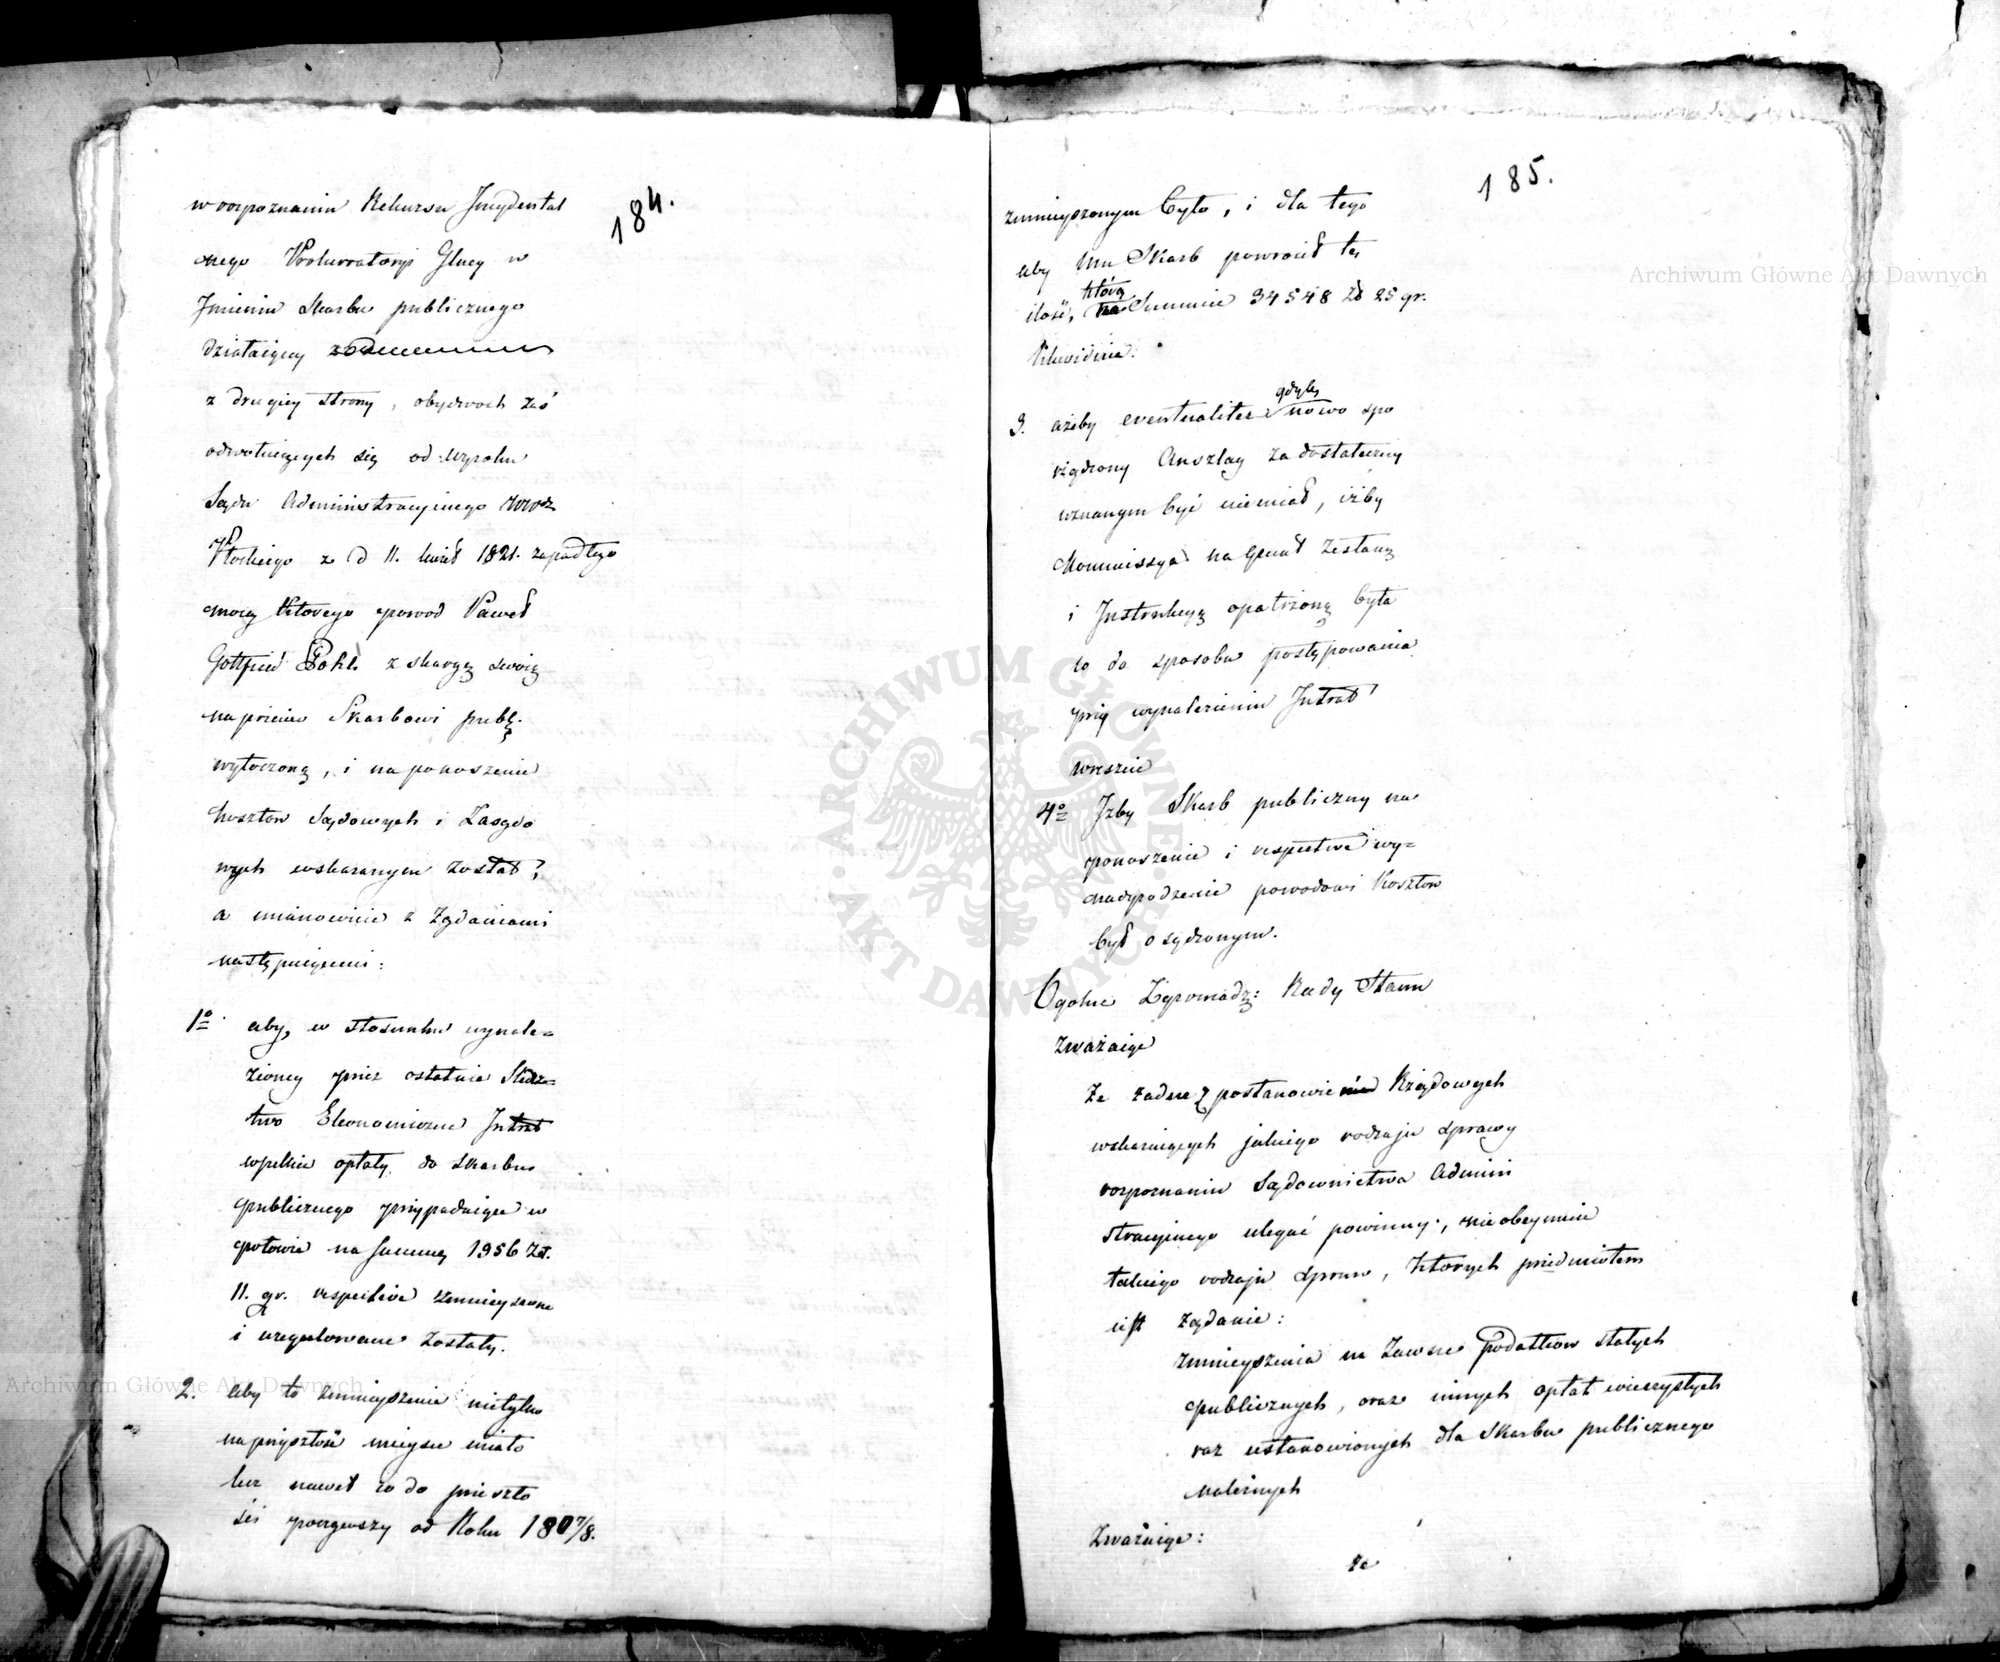 184.
w rozpoznaniu Rekursu Incydental
nego Prokuratoryi Glney w
Imieniu Skarbu publicznego
działaiącey
z drugiey strony, obydwoch zaś
odwołuiących się od Wyroku
Sądu Administracyinego Wwdz
Płockiego z d 11. kwiet 1821. zapadłego
mocą którego powod Paweł
Gottfried Pohl z skargą swoią
naprzeciw Skarbowi publ.
wytoczoną, i na ponoszenie
kosztow Sądowych i Zasądo
wych wskazanym został;
a mianowicie z Żądaniami
następuiącemi:
1o aby, w stosunku wynale=
zioney przez ostatnie Śledz=
two Ekonomiczne Intrat
wszelkie opłaty do Skarbu
publicznego przypadaiące w
połowie na Summę 1956 Zł.
11. gr. respective zmnieyszone
i uregulowane zostały.
2. aby to zmnieyszenie nietylko
naprzyszłość mieysce miało
lecz nawet co do przeszło
ści począwszy od Roku 1807/8.
185.
zmnieyszonym było, i dla tego
aby mu Skarb powrocił tę
którą
ilość, w Summie 34548 Zł 25 gr.
likwiduie.
gdyby
3. ażeby eventualiter nowo spo
rządzony Anszlag za dostateczny
uznanym być niemiał, iżby
Kommissya na grunt zesłaną
i Instrukcyą opatrzoną była
co do sposobu postępowania
przy wynalezieniu Intrat
wreszcie
4o Iżby Skarb publiczny na
ponoszenie i respective wy=
nadgrodzenie powodowi Kosztow
był osądzonym.
Ogolne Zgromadz: Rady Stanu
Zważaiąc
Że żadne z postanowień Rządowych
wskazuiących jakiego rodzaju sprawy
rozpoznaniu Sądownictwa Admini
stracyinego ulegać powinny, nieobeymuie
takiego rodzaju spraw, których przedmiotem
iest żądanie:
zmnieyszenia na zawsze Podatkow stałych
publicznych, oraz innych opłat wieczystych
raz ustanowionych dla Skarbu publicznego
należnych
Zważaiąc:
że
Archiwum Główne Akt Dawnych
Archiwum Główne Akt Dawnych
ARCHIWUM GŁÓWNE AKT DAWNYCH